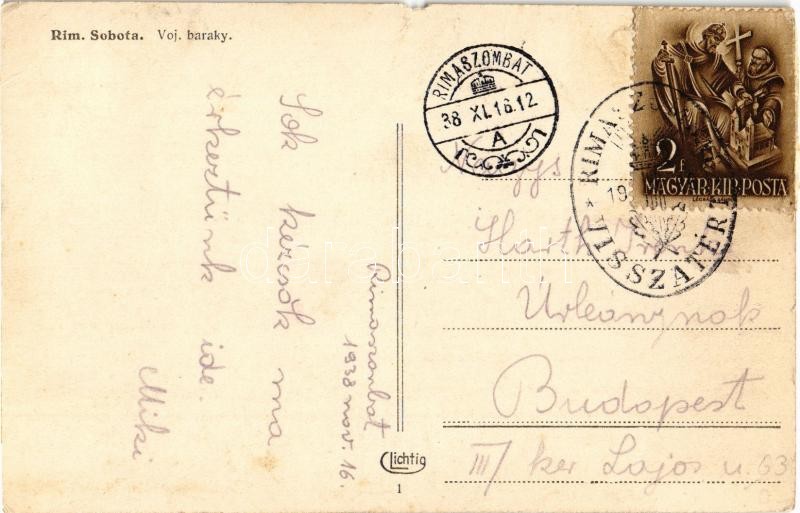 Rim. Sobota. Voj. baraky.
Sok kézcsók ma
érkeztünk ide.
Miki
Rimaszombat
1938 nov. 16.
RIMASZOMBAT
38 XI.16.12
A
RIMASZOMBAT
19
VISSZATÉRT
2f
MAGYAR·KIR·POSTA
Harth
Úrleánynak
Budapest
III/ ker Lajos u. 63
Lichtig
1